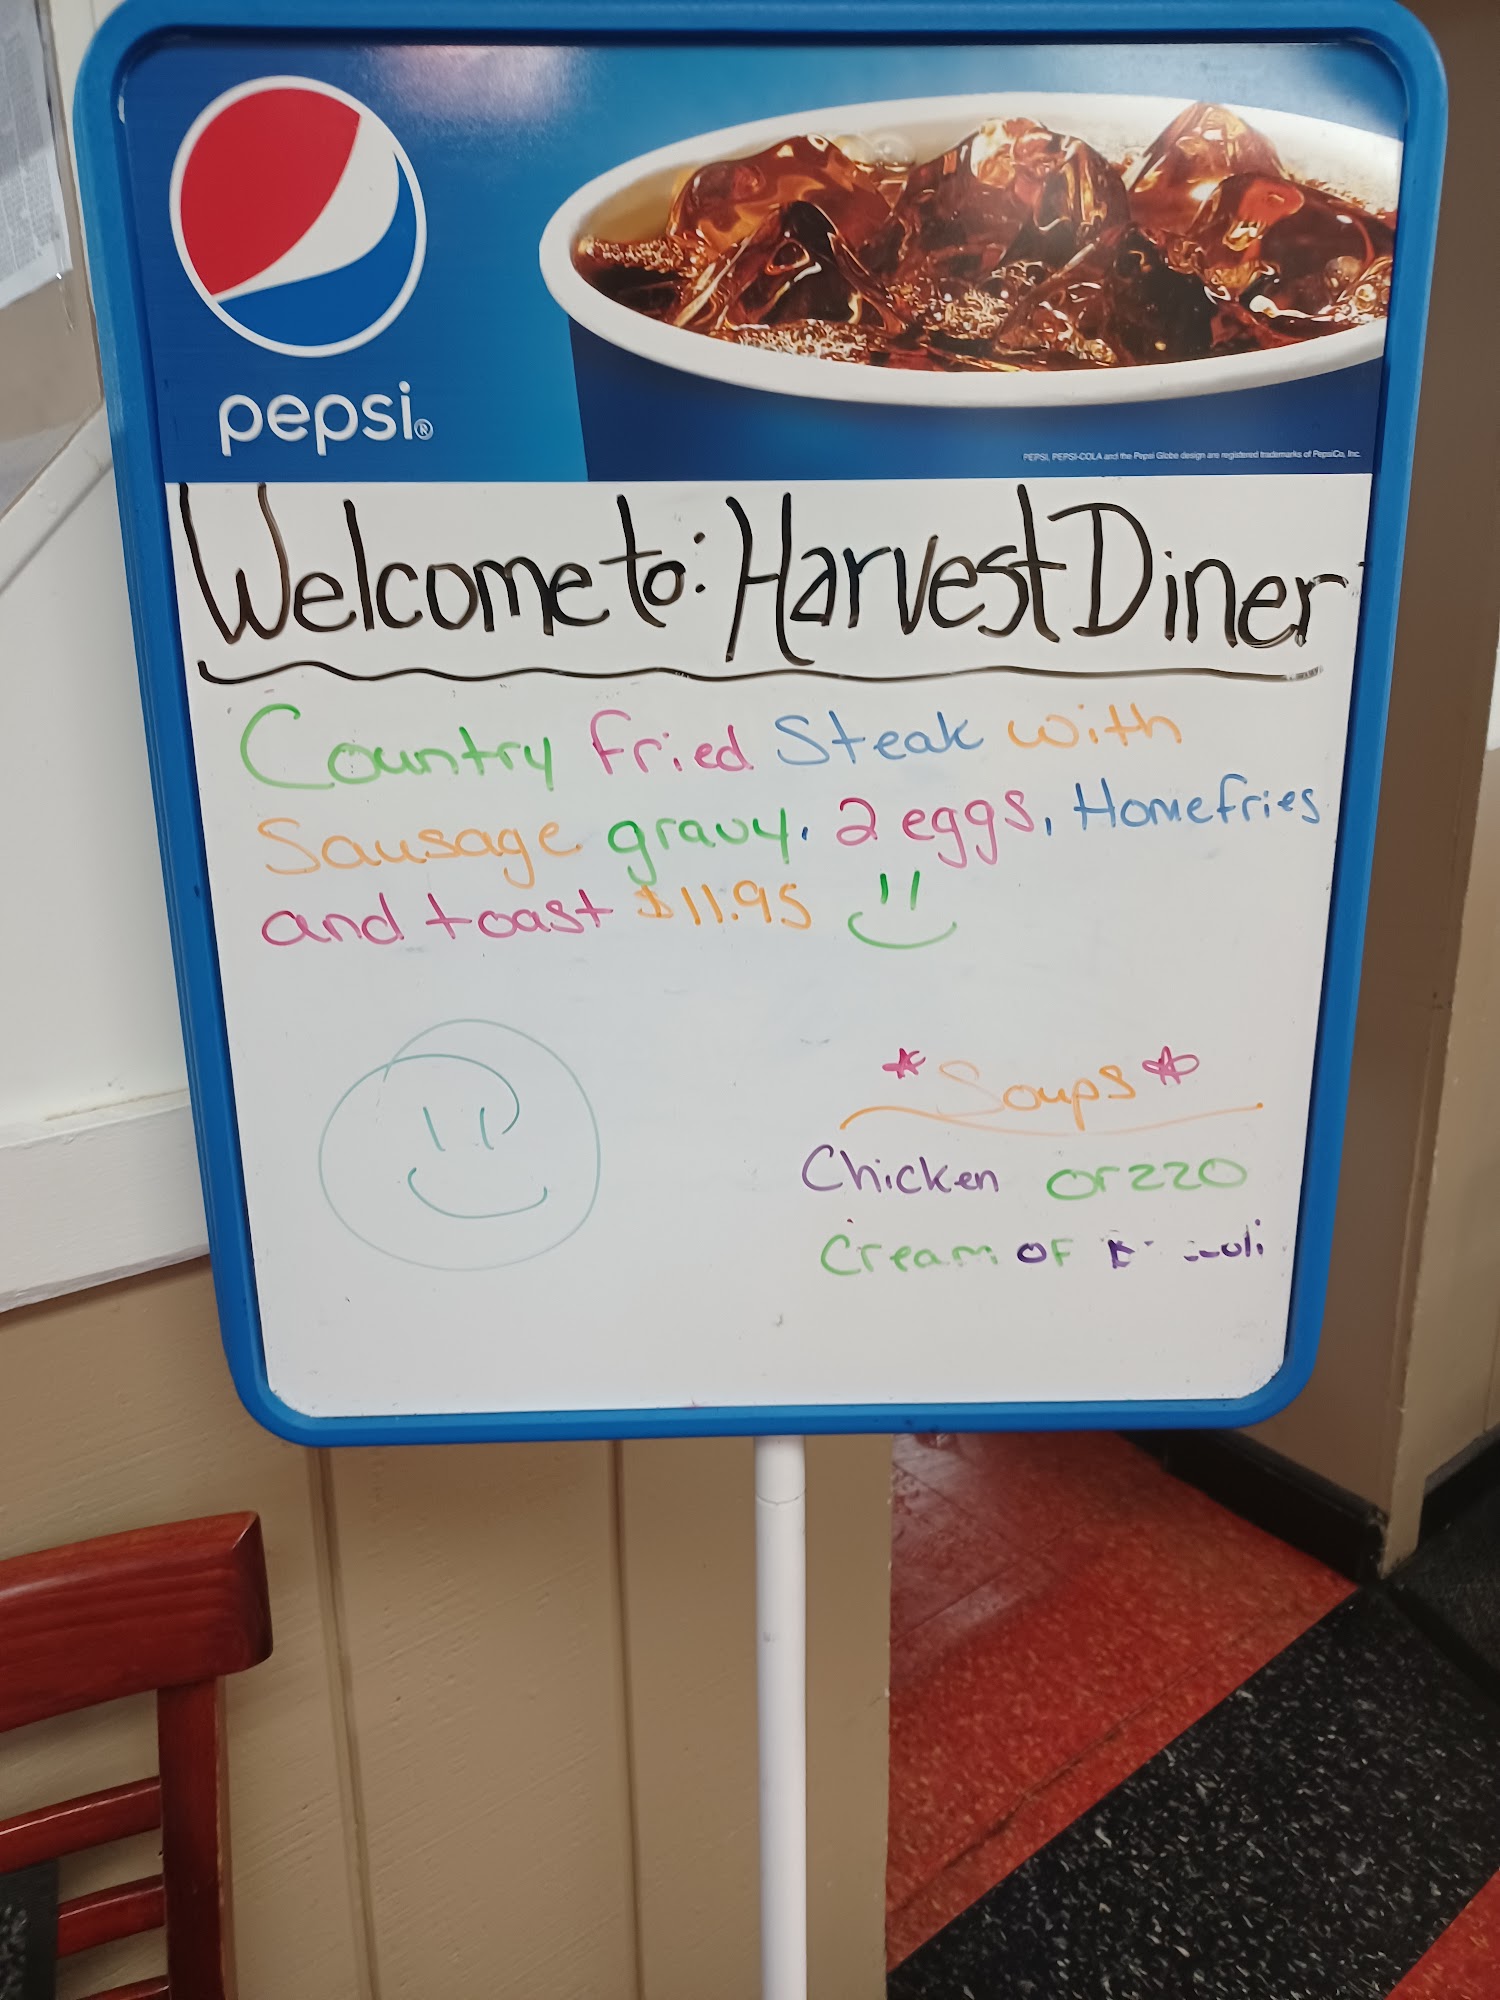 pepsi®
PEPSI, PEPSI-COLA and the Pepsi Globe design are registered trademarks of PepsiCo, Inc.
Welcome to: Harvest Diner
Country Fried Steak with
Sausage gravy, 2 eggs, Homefries
and toast $11.95
*Soups*
Chicken orzzo
Cream OF